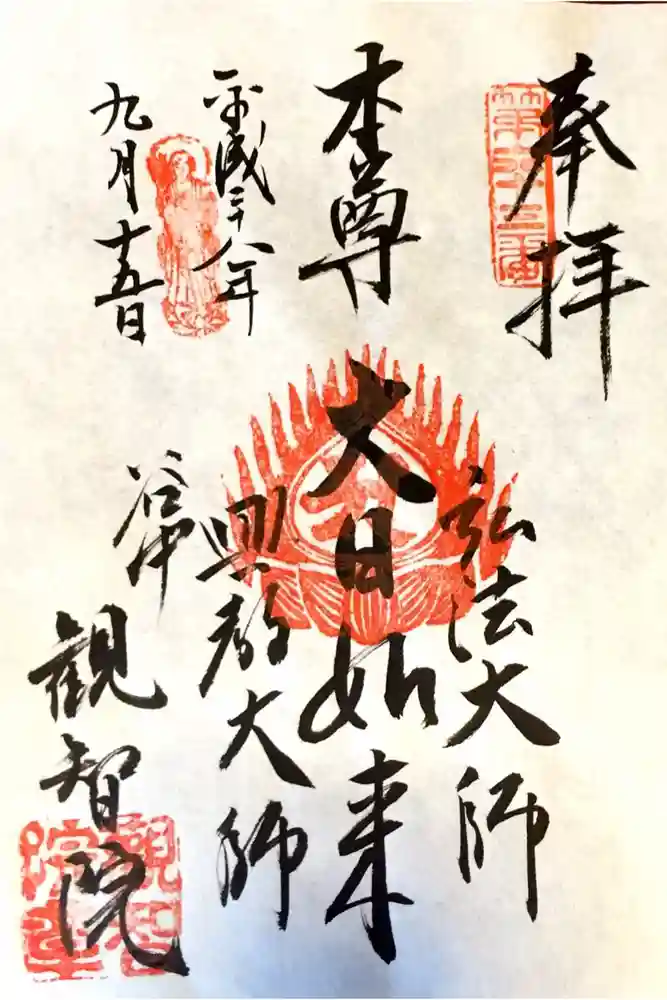 奉拝
第六十三番
本尊
大日如来
弘法大師
興教大師
平成二十八年
九月十五日
谷中
観智院